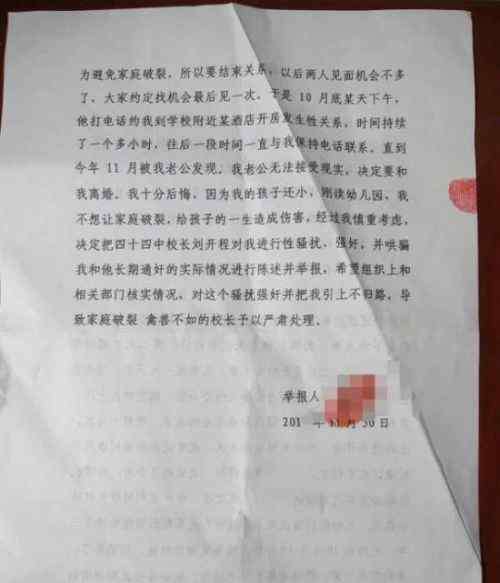 为避免家庭破裂，所以要结束关系，以后两人见面机会不多
了，大家约定找机会最后见一次，于是 10 月底某天下午，
他打电话约我到学校附近某酒店开房发生性关系，时间持续
了一个多小时，往后一段时间一直与我保持电话联系。直到
今年 11 月被我老公发现，我老公无法接受现实，决定要和
我离婚。我十分后悔，因为我的孩子还小，刚读幼儿园，我
不想让家庭破裂，给孩子的一生造成伤害，经过我慎重考虑，
决定把四十四中校长刘开程对我进行性骚扰、强奸，并哄骗
我和他长期通奸的实际情况进行陈述并举报，希望组织上和
相关部门核实情况，对这个骚扰强奸并把我引上不归路，导
致家庭破裂 禽兽不如的校长予以严肃处理。
举报人
201 年 11 月 30 日